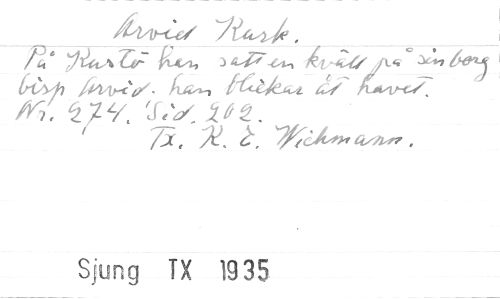 Arvid Kurk.
På Kustö han satt en kväll på sin borg
bisp Arvid. han blickar åt havet.
Nr. 274. Sid. 202.
Tx. K. E. Wichmann.
Sjung TX 1935